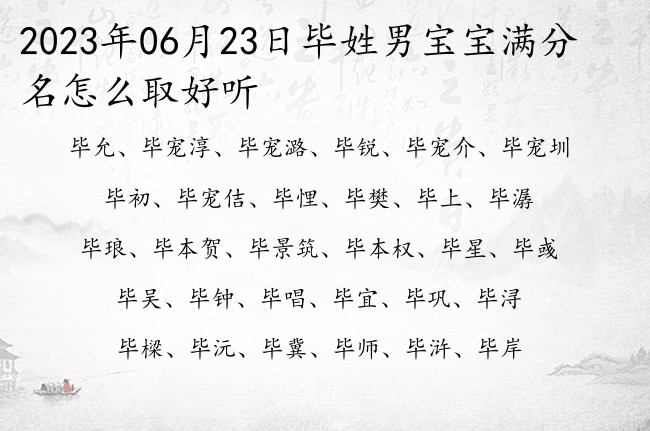 2023年06月23日毕姓男宝宝满分
名怎么取好听
毕允、毕宠淳、毕宠潞、毕锐、毕宠介、毕宠圳
毕初、毕宠佶、毕悝、毕樊、毕上、毕潺
毕琅、毕本贺、毕景筑、毕本权、毕星、毕彧
毕吴、毕钟、毕唱、毕宜、毕巩、毕浔
毕樑、毕沅、毕冀、毕师、毕浒、毕岸